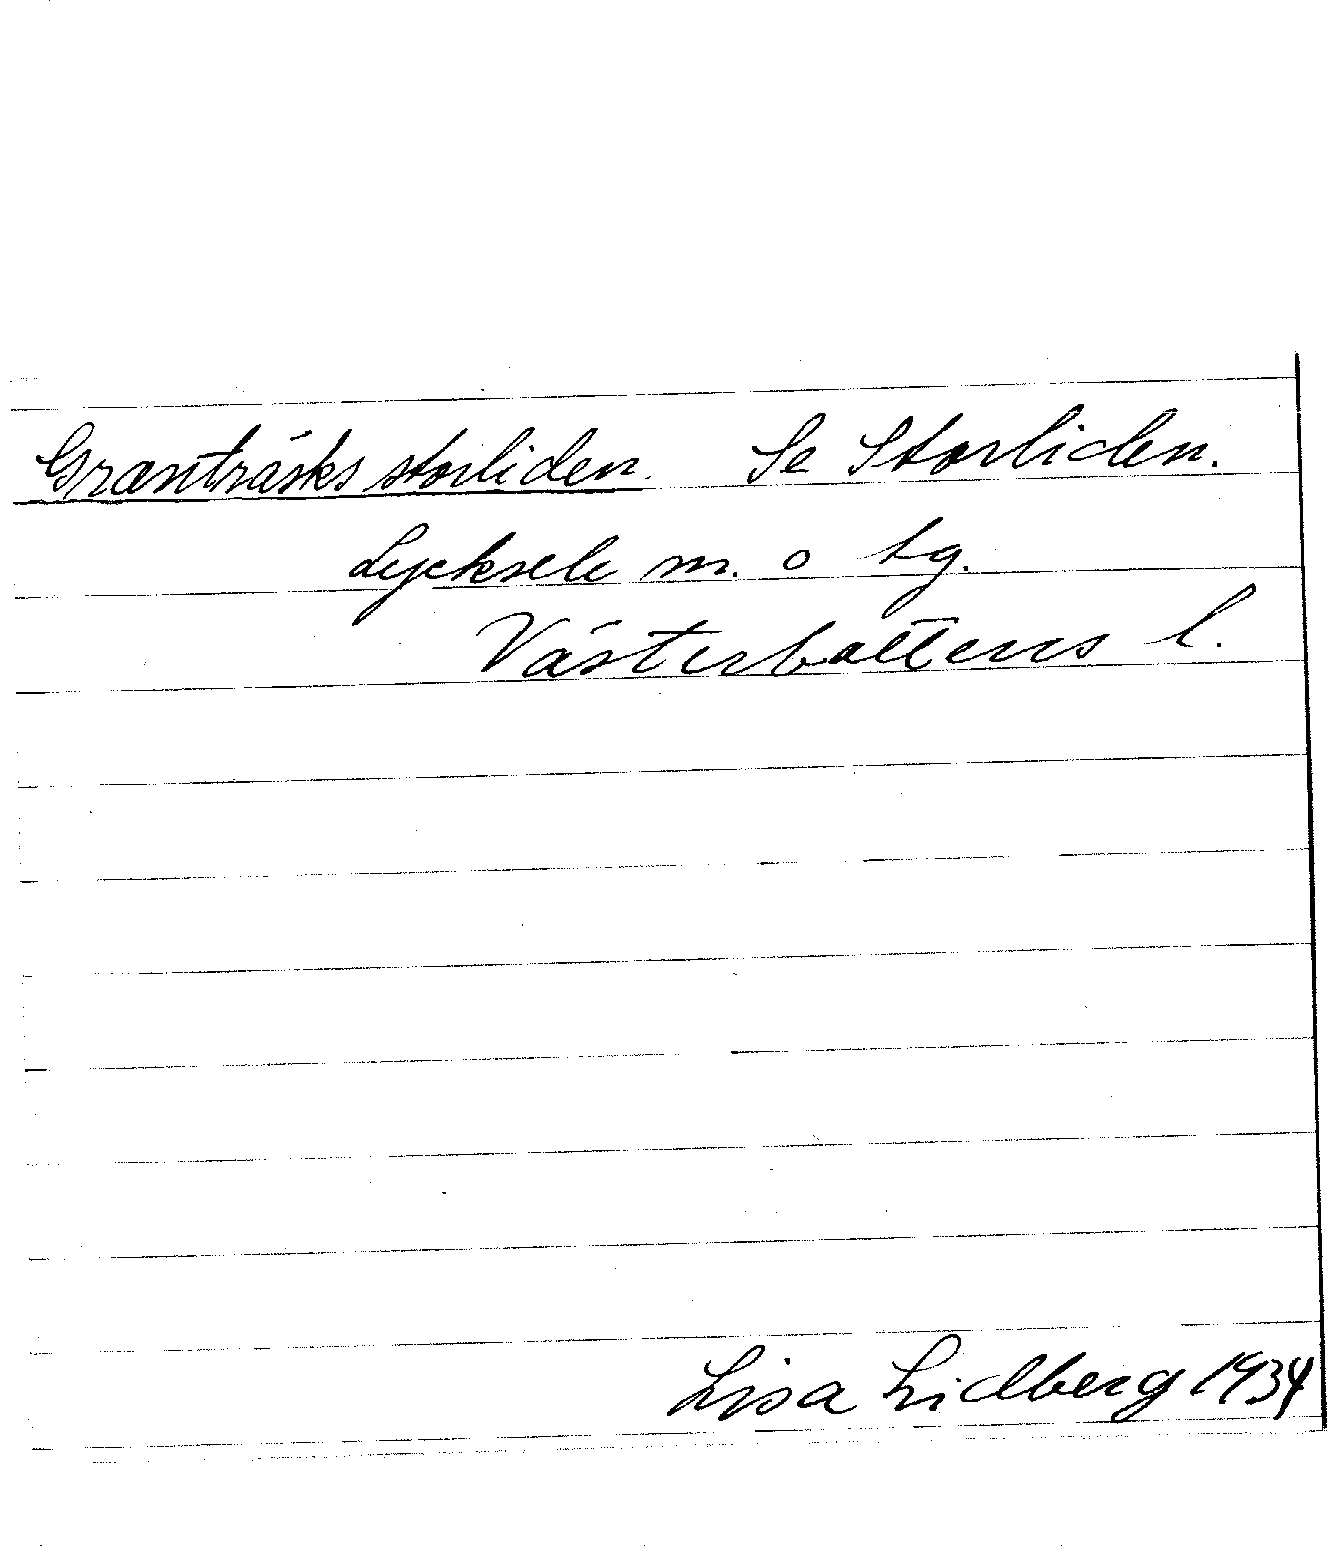 Granträsks storliden. Se Storliden.
Lycksele m. o tg.
Västerbottens l.
Lisa Lidberg 1934